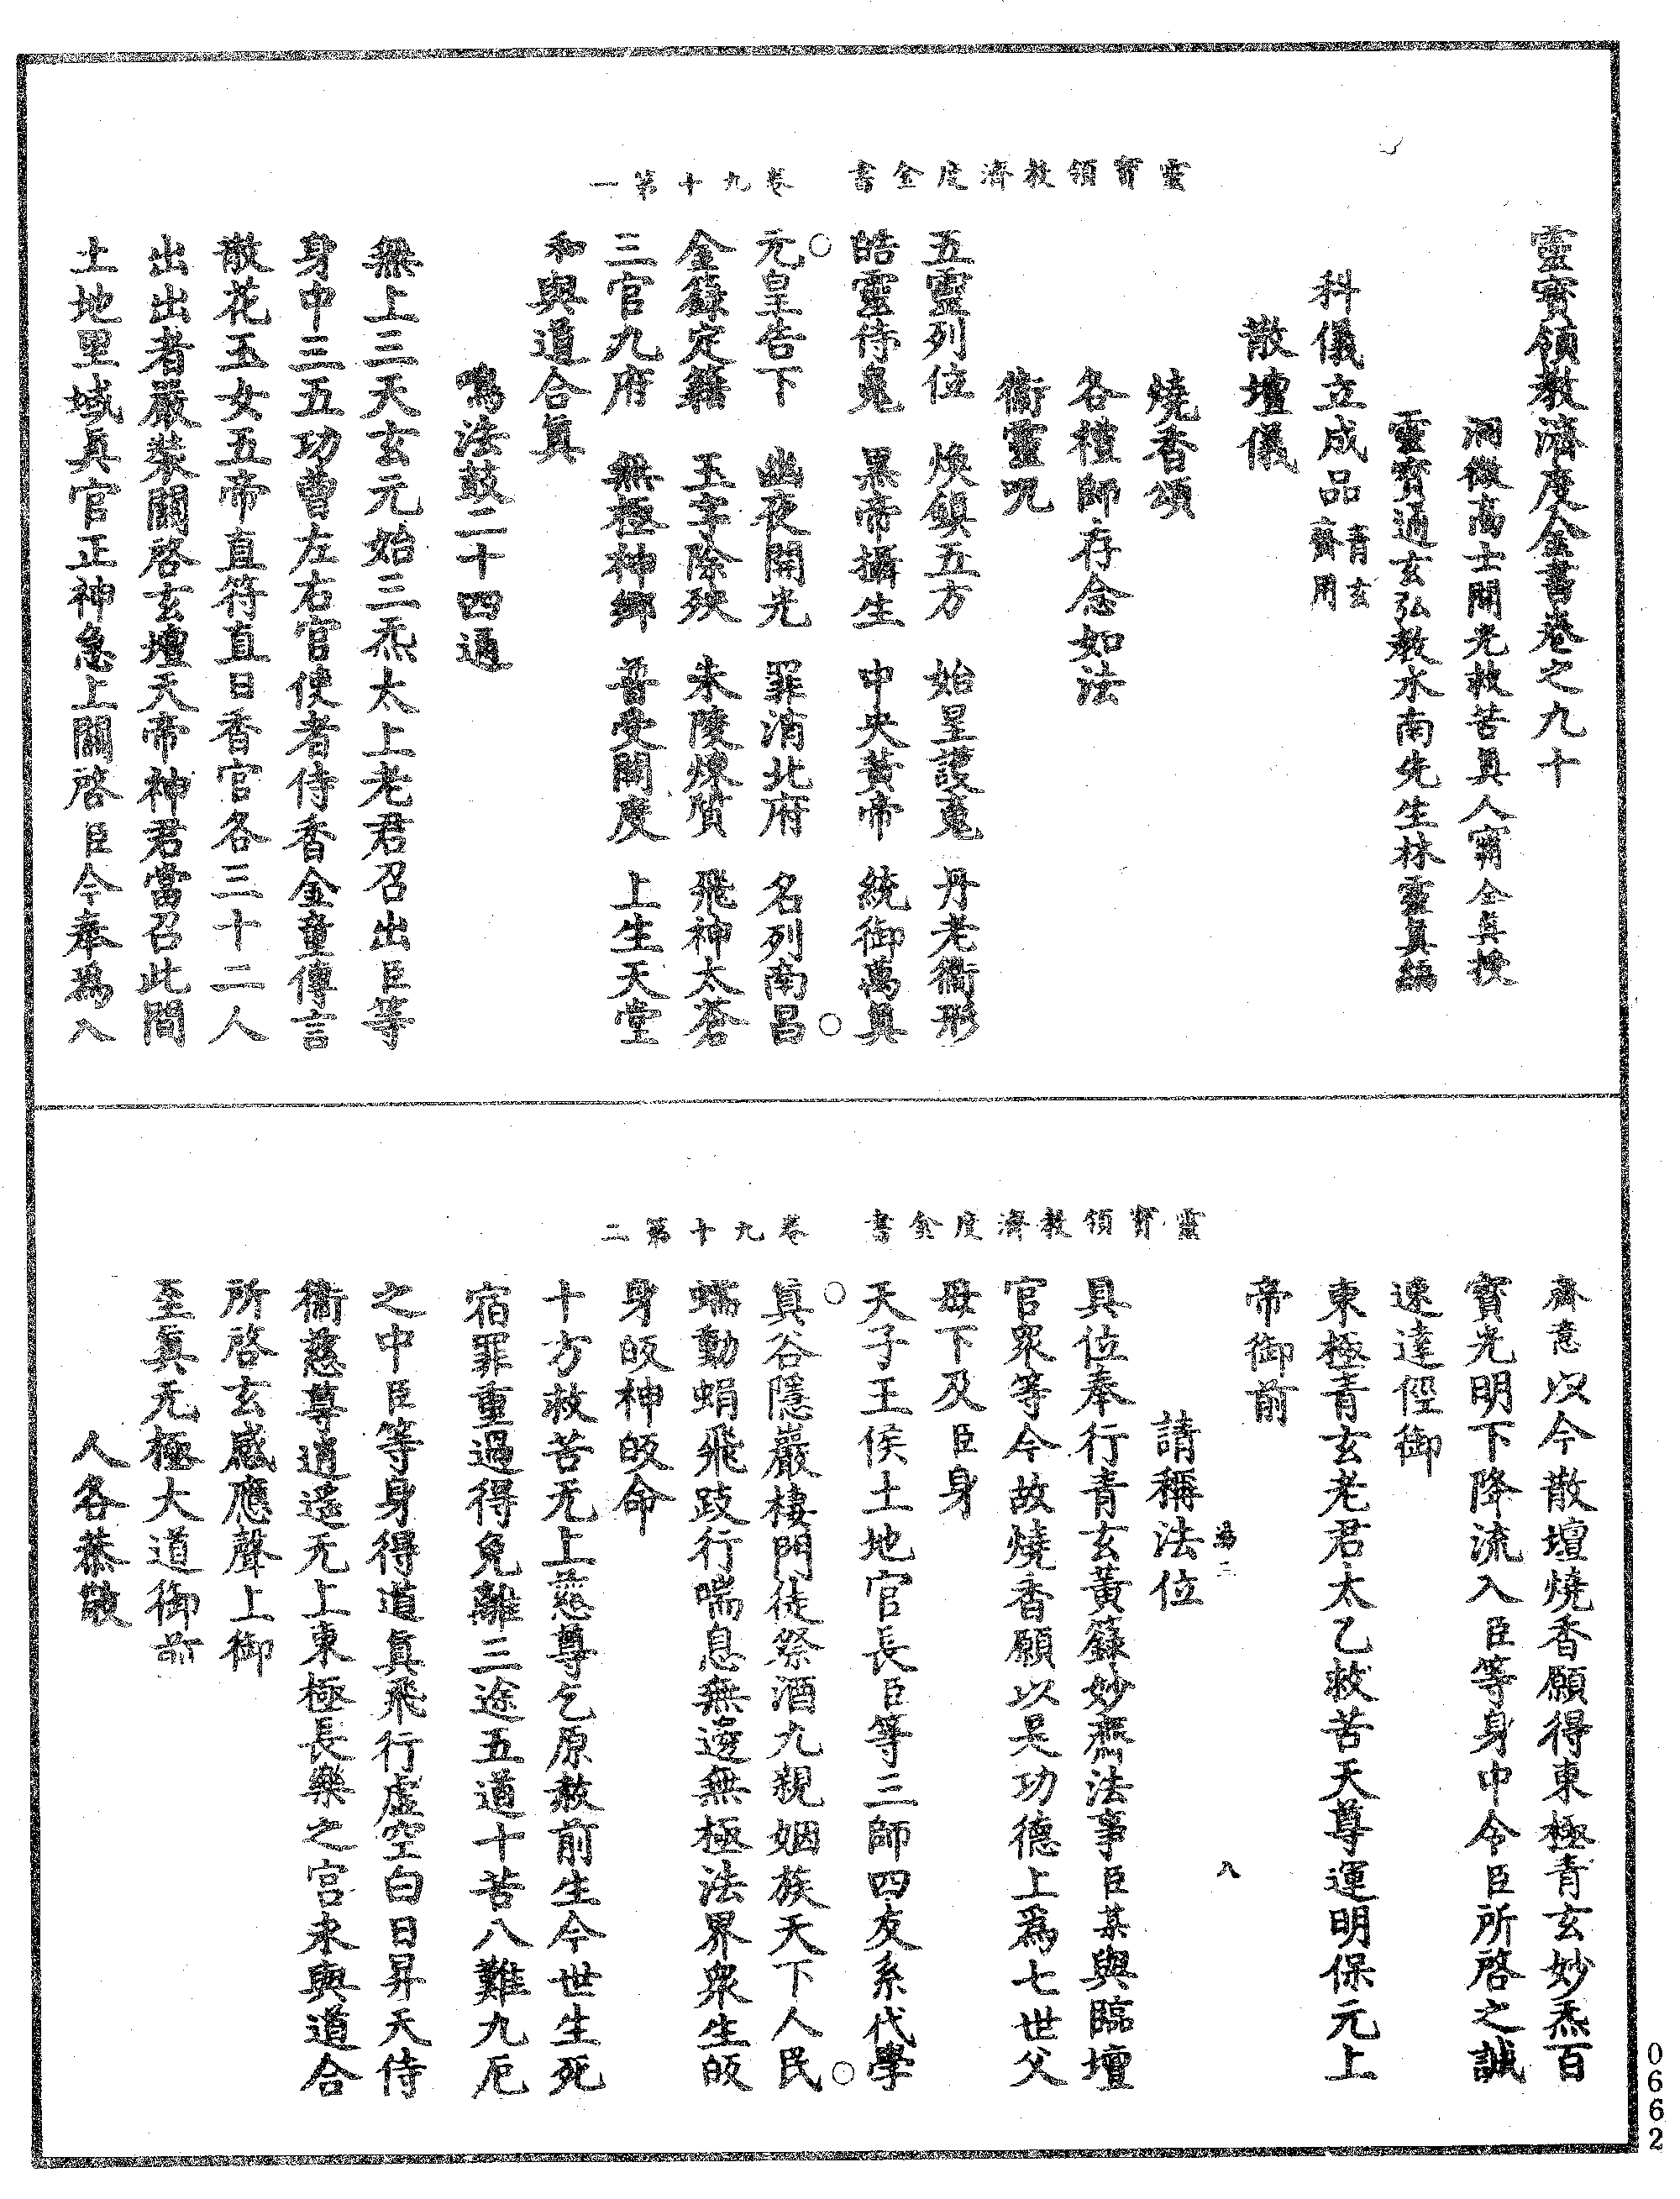 靈寶領教濟度金書卷之九十
洞微高士開光救苦真人甯全真授
靈寶通玄弘教水南先生林靈真編
科儀立成品青玄齋用
散壇儀
燒香頌
各禮師存念如法
衛靈咒
五靈列位 煥鎮五方 始皇護蒐 丹老衛形
皓靈侍鬼 黑帝攝生 中央黃帝 統御萬真
元皇告下 幽夜開光 罪消北府 名列南昌
金籙定籍 玉字除殃 朱陵煉質 飛神太蒼
三官九府 無極神鄉 普受開度 上生天堂
和與道合真
鳴法鼓二十四通
無上三天玄元始三炁太上老君召出臣等
身中三五功曹左右官使者侍香金童傳言
散花玉女五帝直符直日香官各三十二人
出出者嚴裝關啓玄壇天帝神君當召此間
土地里域真官正神急上關啓臣今奉為入
靈寶領教濟度金書 卷九十第一
齋意以今散壇燒香願得東極青玄妙炁百
寶光明下降流入臣等身中令臣所啓之誠
速達徑御
東極青玄老君太乙救苦天尊運明保元上
帝御前
請稱法位
具位奉行青玄黃籙妙齋法事臣某與臨壇
官眾等今故燒香願以是功德上為七世父
母下及臣身
天子王侯土地官長臣等三師四友系代學
真谷隱巖棲門徒祭酒九親姻族天下人民
蠕動蜎飛跂行喘息無邊無極法界眾生皈
身皈神皈命
十方救苦无上慈尊乞原赦前生今世生死
宿罪重過得免離三途五道十苦八難九厄
之中臣等身得道真飛行虛空白日昇天侍
衛慈尊逍遙无上東極長樂之宮永與道合
所啓玄感應聲上御
至真无極大道御前
人各恭敬
靈寶領教濟度金書 卷九十第二
八
0662